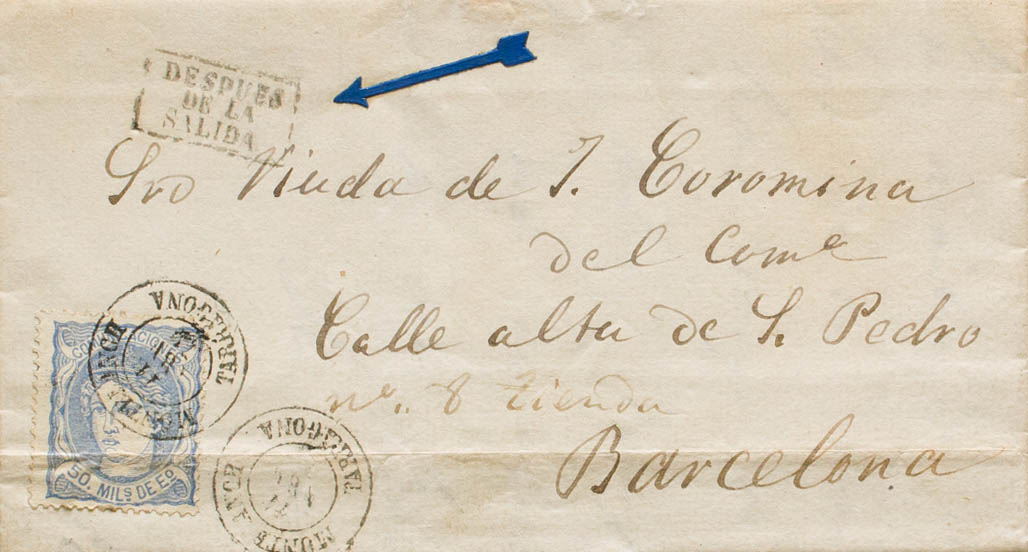 DESPUES
DE LA
SALIDA
Sra Viuda de J. Coromina
del Come
Calle alta de S. Pedro
nº. 8 tienda
Barcelona
TARRAGONA
MONTBLANCH
50. MILS DE Eº
TARRAGONA
MONTBLANCH